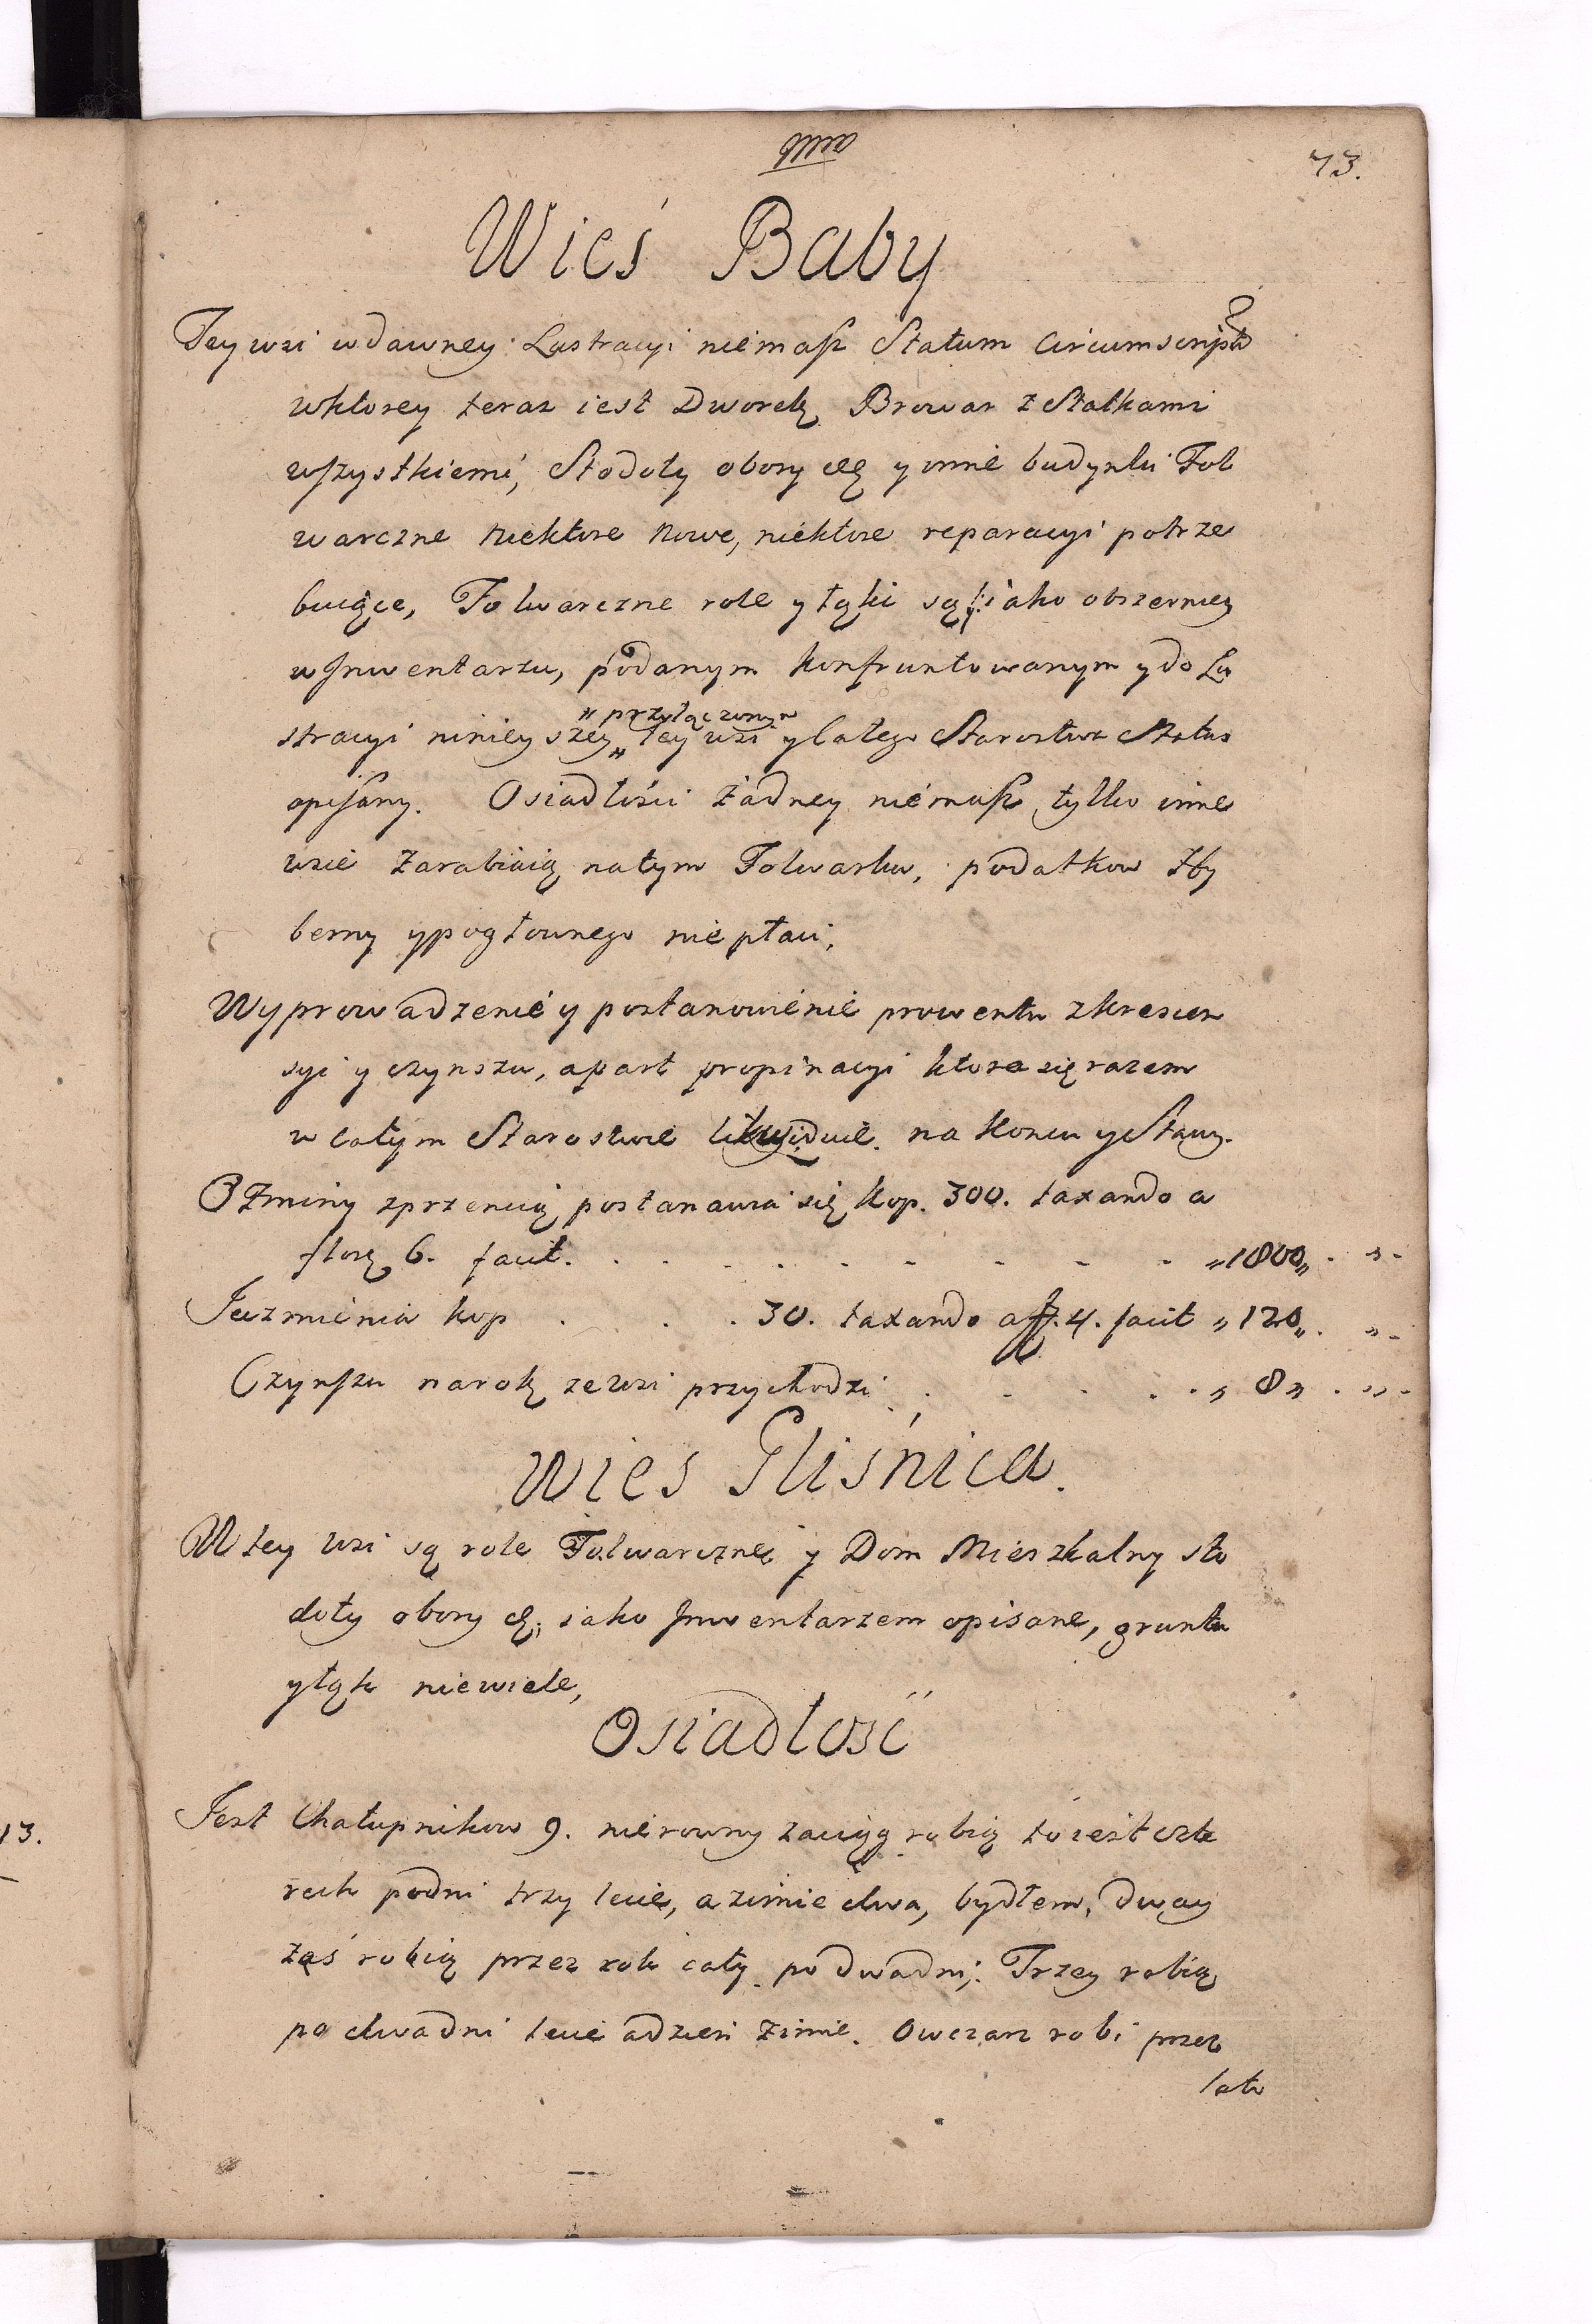 73.
Wieś Baby
Tey wsi wdawney Lustracyi niemasz Statum Circumscript
wktorey teraz iest Dworek, Browar z Statkami
wszystkiemi, Stodoły obory etc y inne budynki Fol
warczne niektore nowe, niektore reparacyi potrze
buiące, Folwarczne role y łąki są iako obszerniey
wInwentarzu, podanym konfruntowanym y do Lu
„przyłączonym
stracyi ninieyszey „ tey wsi y całego Starostwa Status
opisany. Osiadłości żadney niemasz, tylko inne
wsie zarabiaią natym Folwarku, podatkow Hy
berny ypogłownego nie płaci,
Wyprowadzenie y postanowienie prowentu zkrescen
syi y czynszu, apart propinacyi ktora się razem
w całym Starostwie likwiduie. na koncu yStawy.
Ozminy zprzenicą postanawia się kop. 300. taxando a
florę 6. facit. . . . . . . . . „1800„ . „.
Jęczmienia kop . . . . 30. taxando a fl. 4. facit „ 120„. „.
Czynszu narok zewsi przychodzi . . . . . „ 8„ . „.
Wies Gliśnica.
W tey wsi są role Folwarczne y Dom Mieszkalny sto
doły obory etc, iako Inwentarzem opisane, gruntu
yłąk niewiele,
Osiadłość
Jest Chałupnikow 9. nierowny zaciąg robią to iest czte
rech podni trzy lecie, a zimie dwa, bydłem, dway
zaś robią przez rok cały po dwadni; Trzey robią
po dwadni lecie adzien zimie. Owczarz robi przez
lato
13.